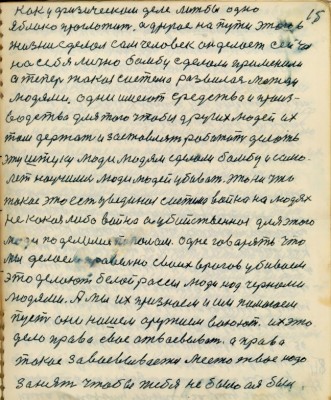 15
как у физическом деле литбы одно
яблоко проглотит. а другое на пути это в
жизни сделал сам человек он делает сейчас
на себя лично бомбу сделали применили
а теперь такая система развилась между
людями, одни имеют средства и произ-
водства для того чтобы других людей их
там держат и заставляют работать делать
эту штуку люди людям сделали бомбу и само-
лет научили людей людей убивать. Это ни что
такое это есть у единая система война на людях
не какая либо война а убийственная для этого
люди поделились пополам. одне говарять что
мы делаем правильно своих врогов убиваем
это делают белой рассы люди над черными
людями. А мы их признаем и им помогаем
пусть они нашем оружием воюют. их это
дело права свое отваевывать. а права
такое завоевываежи место твое надо
занять чтобы тебя не было а я был